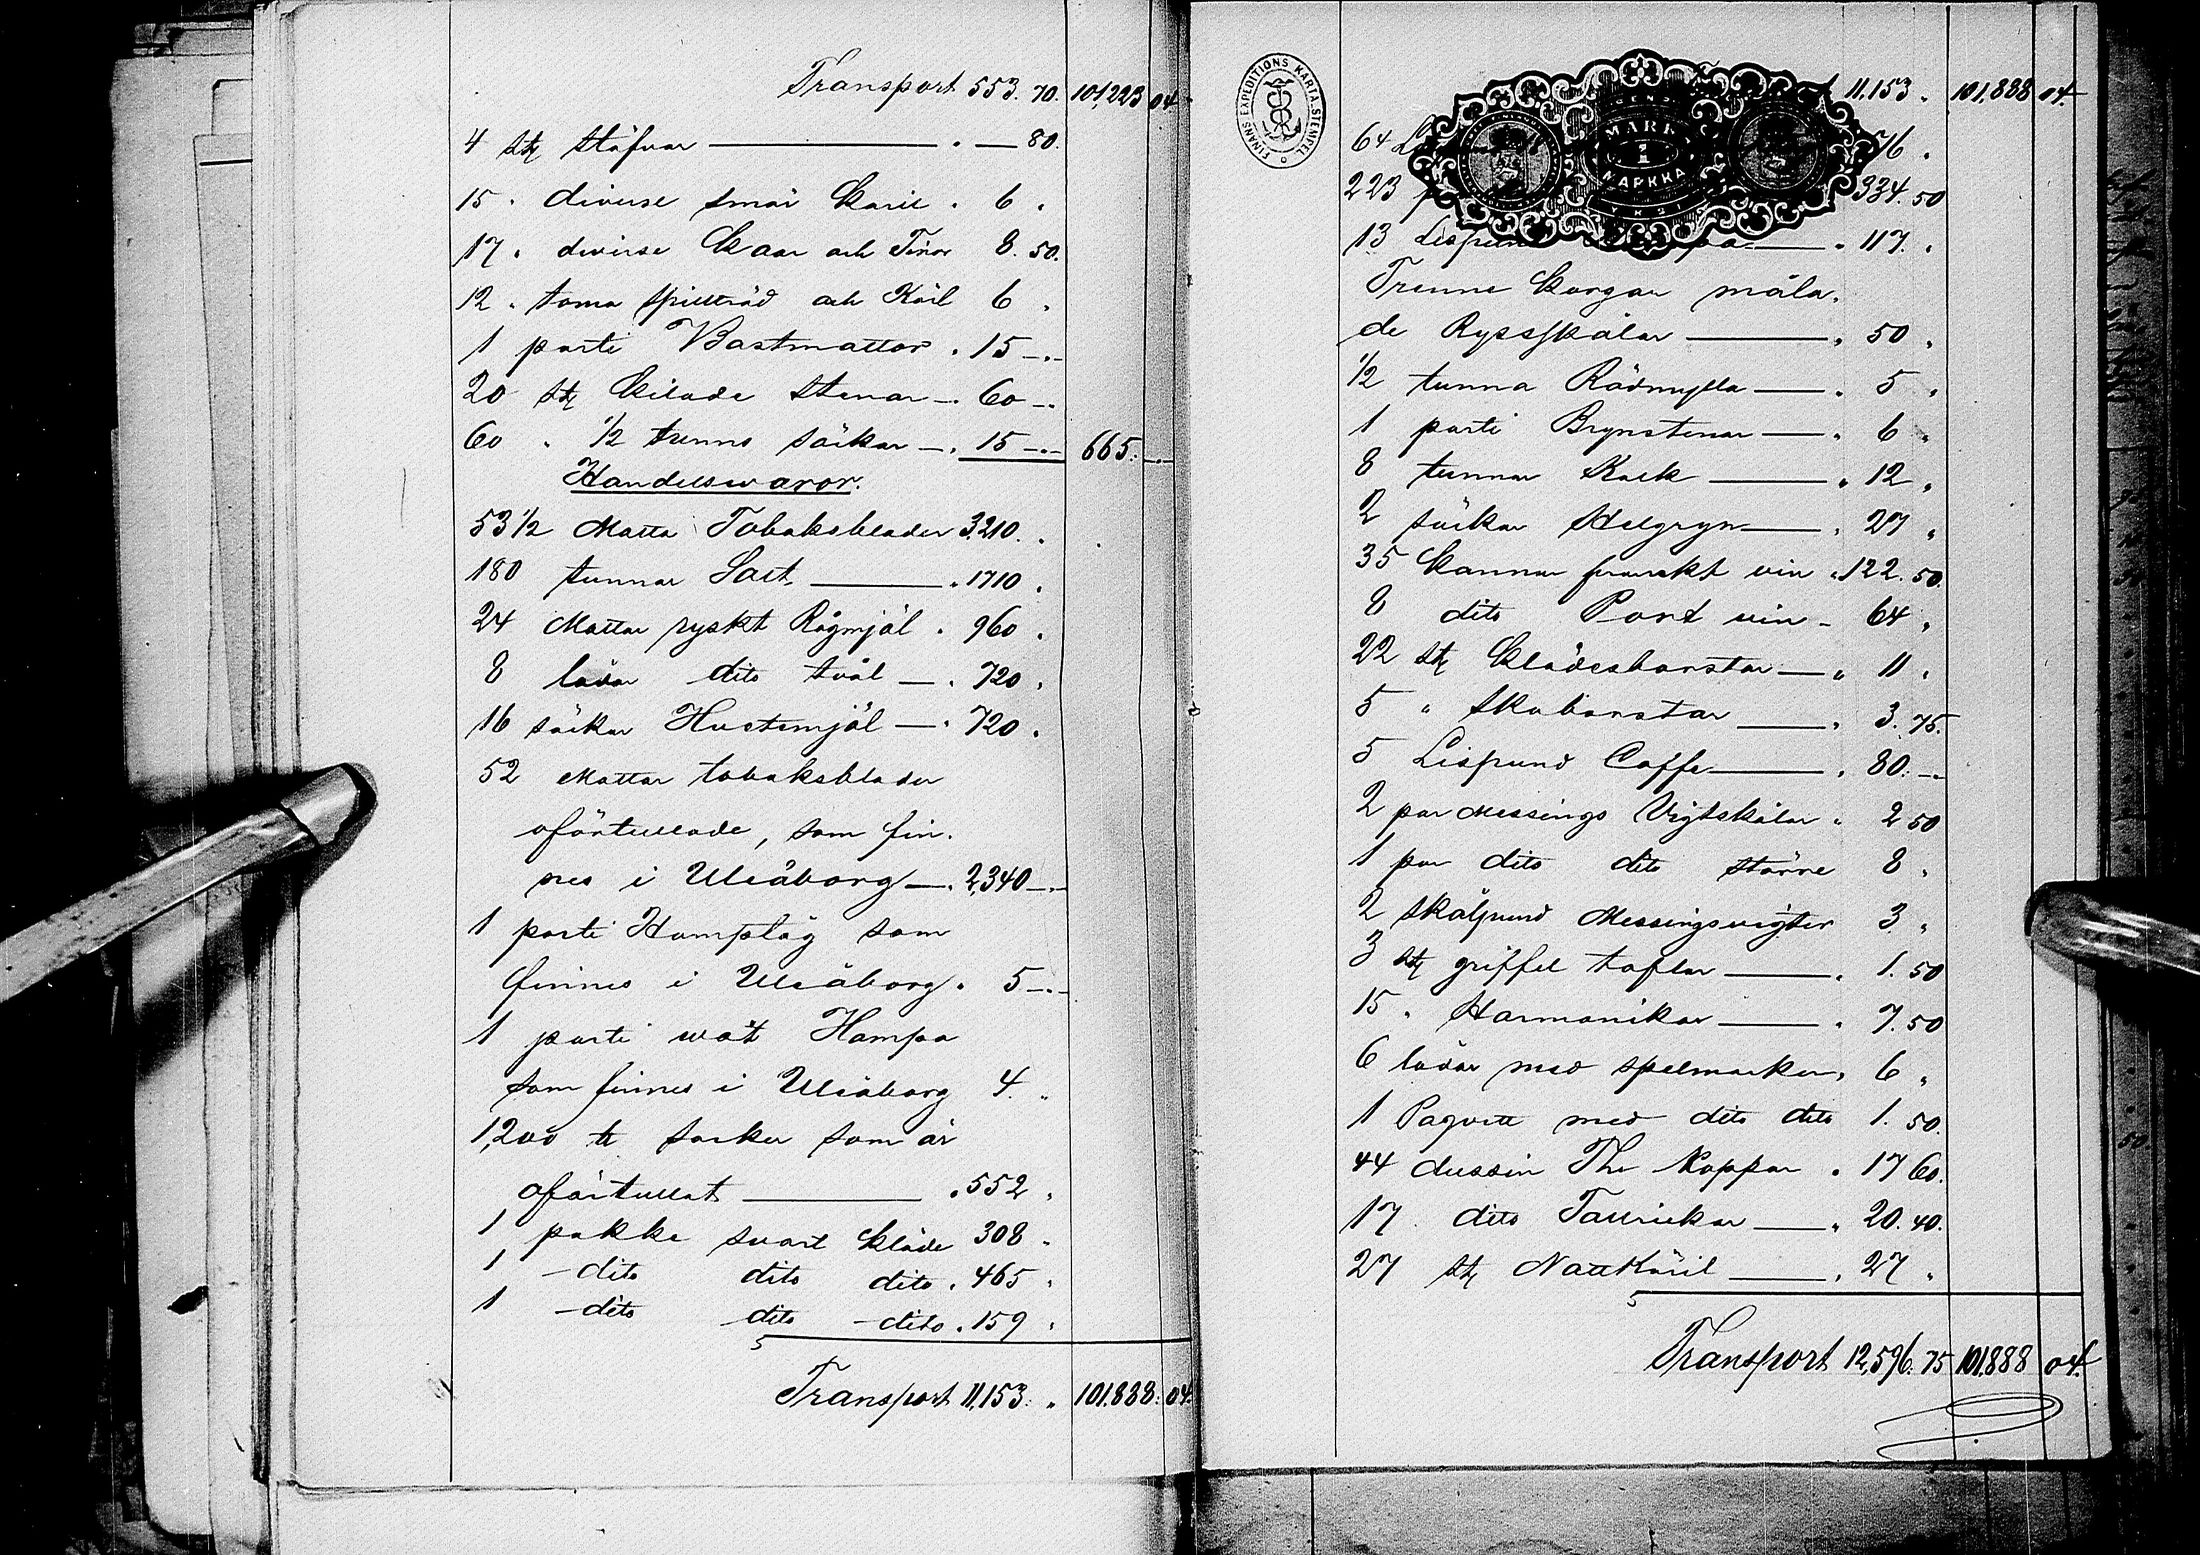 Transport 553. 70. 101,223 04
4 st stäfvar — . — 80.
15 . diverse små Käril . 6 .
17 . diverse Kaar och Tinor 8. 50.
12 . toma spillträd och Käril 6 .
1 parti Bastmattor . 15 -.-
20 st kilade stenar - . 60 -.
60 . 1/2 tunns säckar - . 15 -.- 665. -.-
Handelswaror.
53 1/2 Matta Tobaksblader 3,210. .
180 tunnar Salt — . 1710 .
24 Mattar ryskt Rågmjöl . 960 .
8 lådor dito tvål — . 720 .
16 säckar Hvetemjöl — . 720 .
52 Mattar tobaksblader
oförtullade, som fin.
nes i Uleåborg — . 2,340 -.-
1 parti Hampläg som
finnes i Uleåborg . 5 -.-
1 parti wåt Hampa
som finnes i Uleåborg 4. "
1,200 ℔ socker som är
oförtullat — . 552 .
1 pakke svart kläde 308 .
1 - dito dito dito . 465 .
1 - dito dito - dito . 159 .
Transport 11,153. . 101,888. 04.
FINANS EXPEDITIONS KARTA-STEMPEL
11,153 . 101,888 04.
MARK
1
МАРККА
64 516 .
223 334. 50
13 Lispund — . 117. .
Trenne Korgar måla.
de Rysskålar — . 50 .
1/2 tunna Rödmylla — . 5 .
1 parti Brynstenar — . 6 .
8 tunnor Kalk — . 12 .
2 säckar Helgryn — . 27 .
35 Kannor franskt vin . 122. 50.
8 dito Port vin - 64 .
22 st Klädesborstar — . 11 .
5 " Skoborstar — . 3. 75.
5 Lispund Caffe — . 80. -.
2 par Messings Vigtskålar . 2 50
1 par dito dito större 8 .
2 skålpund Messingsvigter 3 .
3 st griffel taflor — . 1. 50
15 . Harmonikor — . 7. 50
6 lådor med spelmarker . 6 .
1 Paqvett med dito dito 1. 50.
44 dussin The Koppar . 17 60.
17. dito Tallrickar — . 20. 40.
27 st Nattkäril — . 27 .
Transport 12,596. 75 101,888 04.